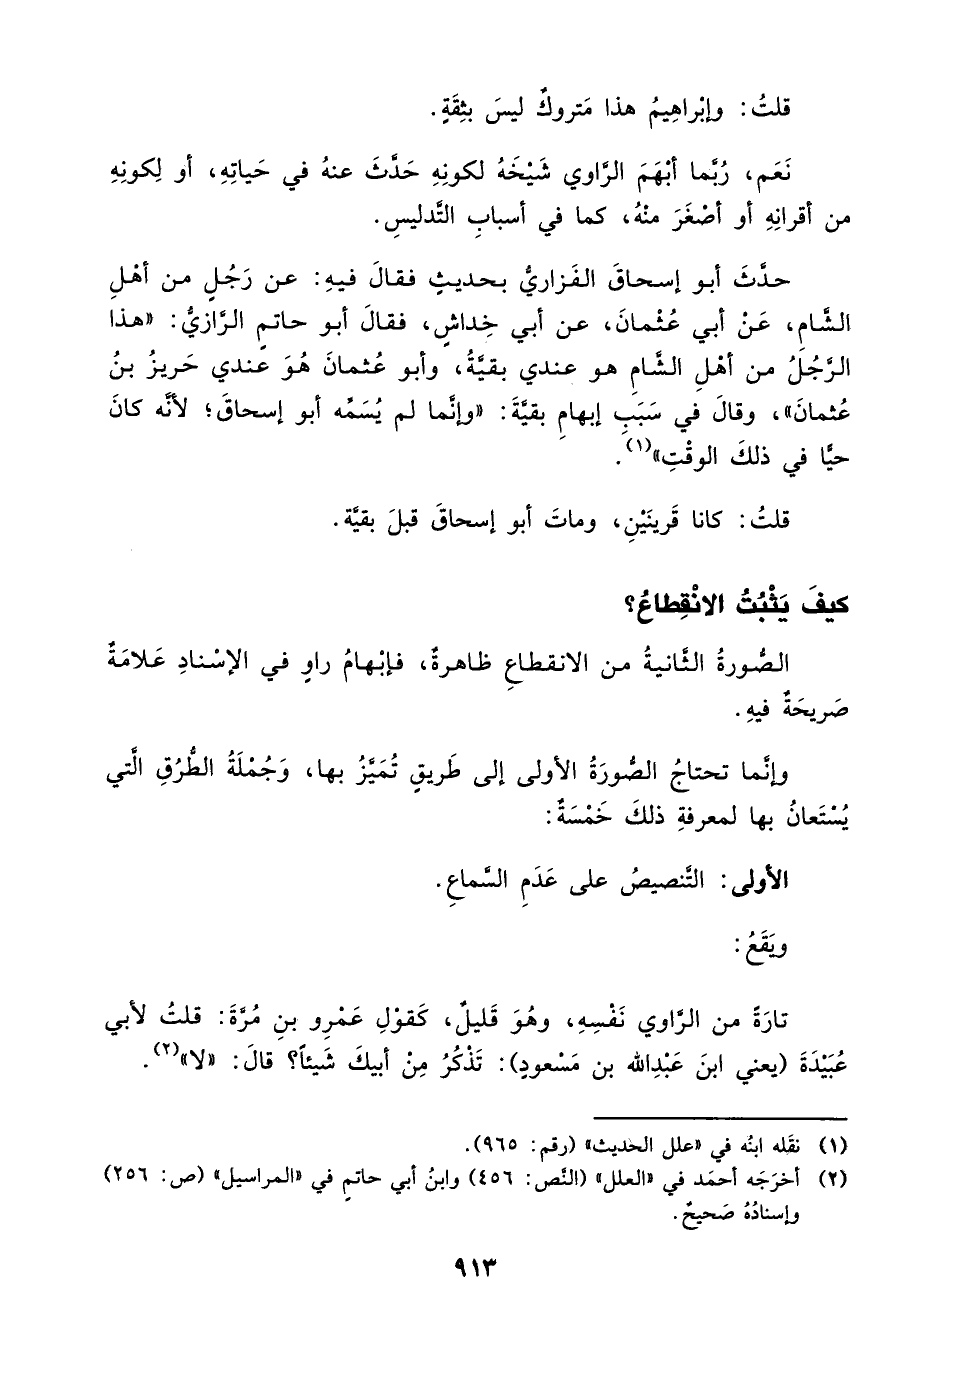 قلتُ: وإبْراهِيمُ هذا مَتروكٌ ليسَ بثِقَةٍ.
نَعَم، رُبَّما أبْهَمَ الرَّاوي شَيْخَهُ لكونِهِ حَدَّثَ عنهُ في حَياتِهِ، أو لِكونِهِ
من أقرانِهِ أو أصْغَرَ منْهُ، كما في أسبابِ التَّدليسِ.
حدَّثَ أبو إسحاقَ الفَزاريُّ بحديثٍ فقالَ فيهِ: عن رَجُلٍ من أهْلِ
الشَّامِ، عَنْ أبي عُثْمانَ، عن أبي خِداشٍ، فقالَ أبو حاتمٍ الرَّازيُّ: «هذا
الرَّجُلُ من أهْلِ الشَّامِ هو عندي بقيَّةُ، وأبو عُثمانَ هُوَ عندي حَريزُ بنُ
عُثمانَ»، وقالَ في سَبَبِ إبهامِ بقيَّةَ: «وإنَّما لم يُسَمِّه أبو إسحاقَ؛ لأنَّه كانَ
حيًّا في ذلكَ الوقْتِ»(١).
قلتُ: كانا قَرينَيْنِ، وماتَ أبو إسحاقَ قبلَ بقيَّة.
كيفَ يَثْبُتُ الانْقِطاعُ؟
الصُّورةُ الثَّانيةُ من الانقطاعِ ظاهرةٌ، فإبْهامُ راوٍ في الإسْنادِ عَلامَةٌ
صَريحَةٌ فيهِ.
وإنَّما تحتاجُ الصُّورَةُ الأولى إلى طَريقٍ تُمَيَّزُ بها، وَجُمْلَةُ الطُّرُقِ الَّتي
يُسْتَعانُ بها لمعرفةِ ذلكَ خَمْسَةٌ:
الأولى: التَّنصيصُ على عَدَمِ السَّماعِ.
ويَقَعُ:
تارَةً من الرَّاوي نَفْسِهِ، وهُوَ قَليلٌ، كَقوْلِ عَمْرِو بنِ مُرَّةَ: قلتُ لأبي
عُبَيْدَةَ (يعني ابنَ عَبْدِالله بن مَسْعودٍ): تَذْكُرُ مِنْ أبيكَ شَيئاً؟ قالَ: «لا»(٢).
(١) نقَله ابنُه في «علل الحَديث» (رقم: ٩٦٥).
(٢) أخرَجَه أحمَد في «العلل» (النَّص: ٤٥٦) وابنُ أبي حاتمٍ في «المراسيل» (ص: ٢٥٦)
وإسنادُهُ صَحيحٌ.
٩١٣